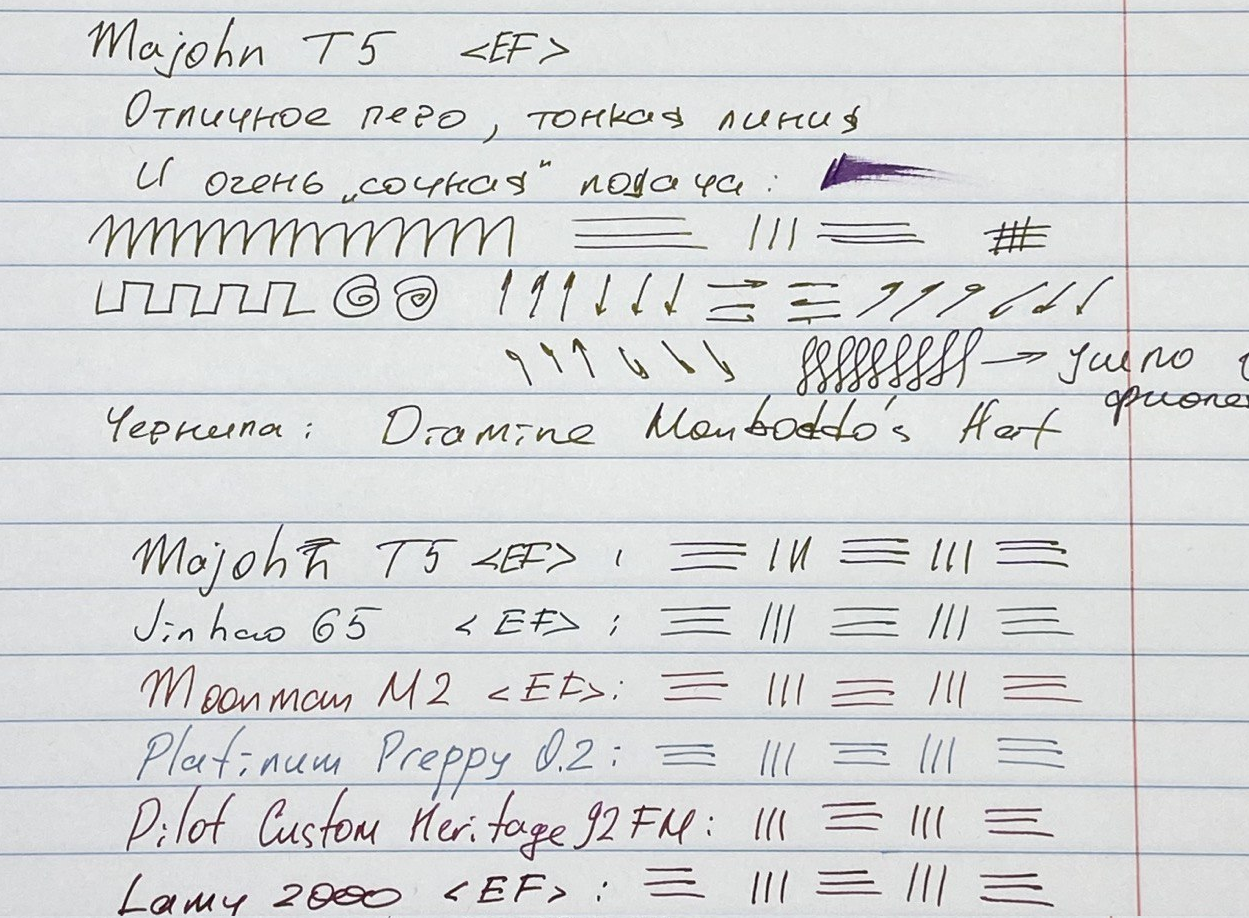 Majohn T5 <EF>
Отличное перо, тонкая линия
и очень „сочная“ подача:
Чернила: Diamine Monboddo's Hat
Majohn T5 <EF> :
Jinhao 65 <EF> :
Moonman M2 <EF>:
Platinum Preppy 0.2:
Pilot Custom Heritage 92 FM:
Lamy 2000 <EF> :